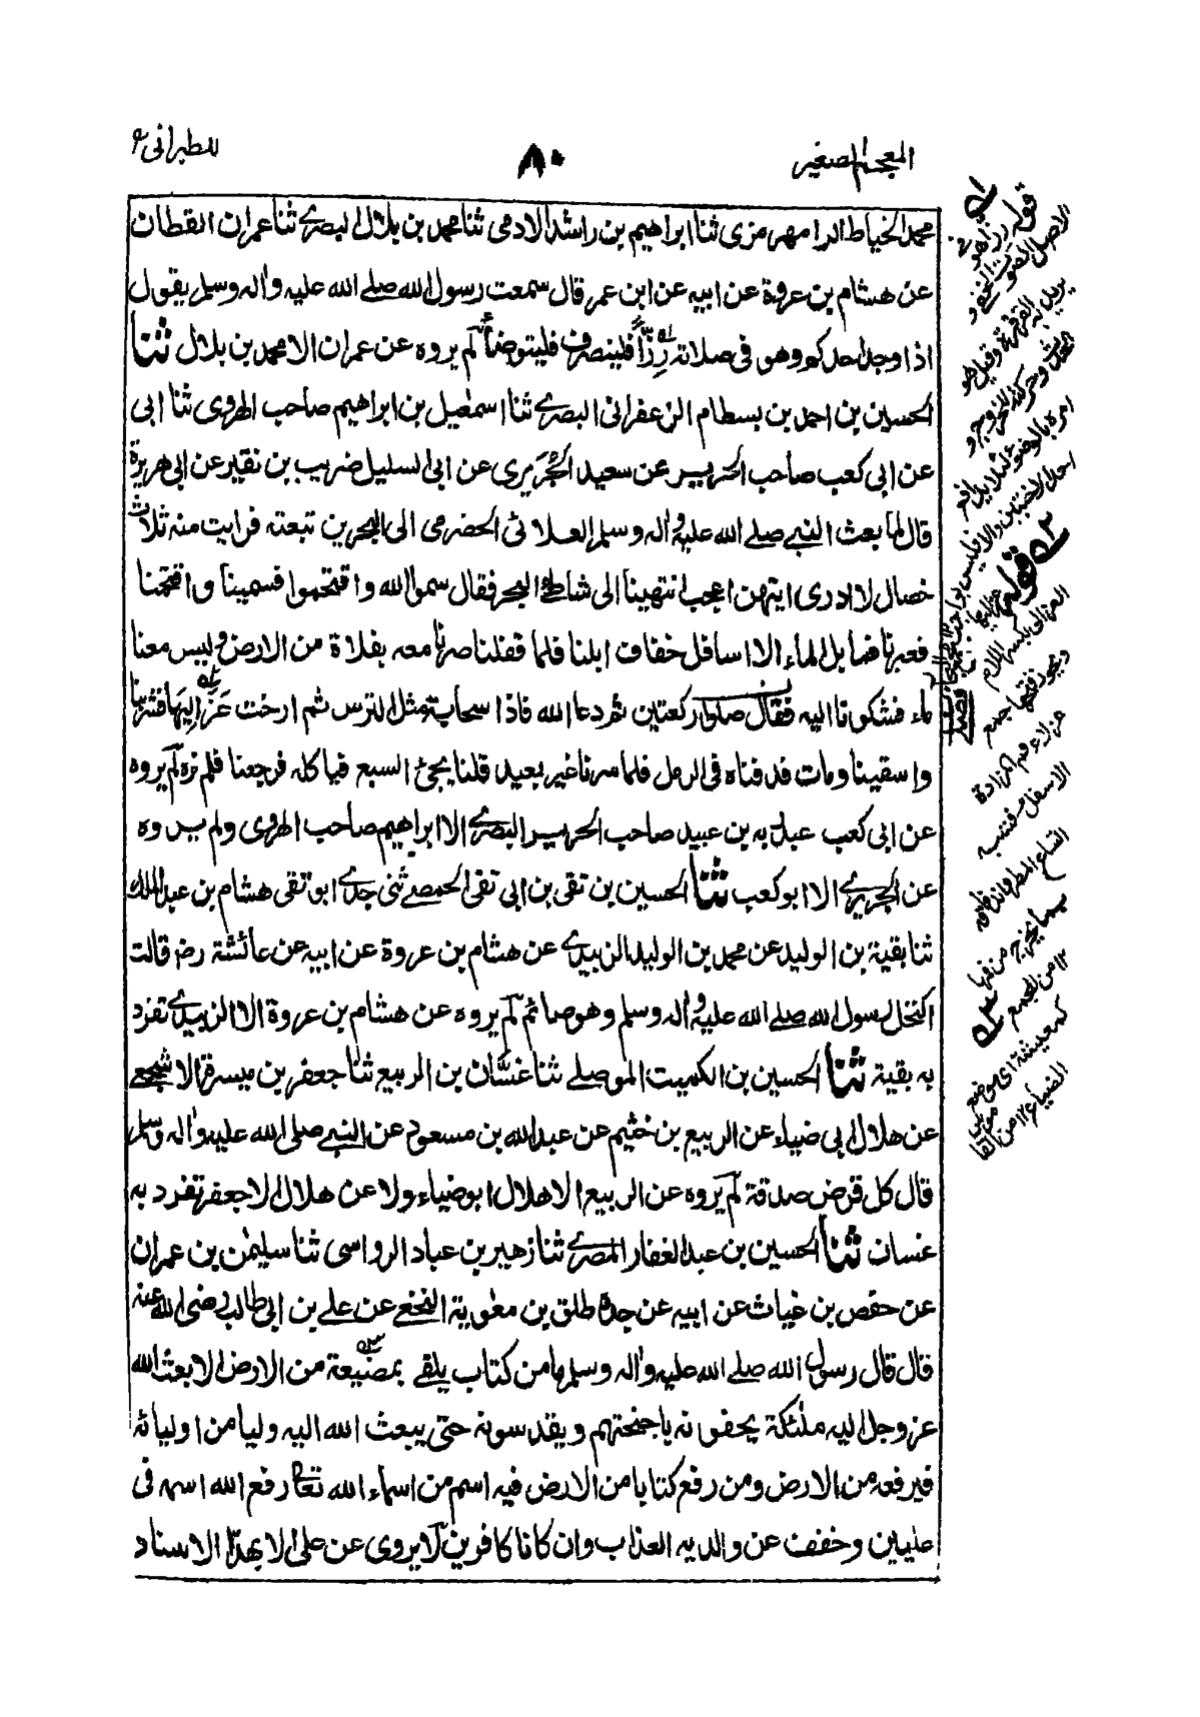 المعجم الصغير
٨٠
للطبرانى
محمد الخياط الرامهرمزى ثنا ابراهيم بن راشد الادمى ثنا محمد بن بلال البصرے ثنا عمران القطان
عن هشام بن عروة عن ابيه عن ابن عمر قال سمعت رسول الله صلے الله عليه واٰله وسلم يقول
اذا وجد احدكم وهو فى صلاته رِزًّا فلينصرف فليتوضأ لم يروه عن عمران الا محمد بن بلال ثنا
الحسين بن احمد بن بسطام الزعفرانى البصرے ثنا اسمٰعيل بن ابراهيم صاحب الهروى ثنا ابى
عن ابى كعب صاحب الحرير عن سعيد الجُرَيرى عن ابى السليل ضريب بن نقير عن ابى هريرة
قال لما بعث النبے صلے الله عليه واٰله وسلم العلائى الحضرمى الى البحرين تبعته فرايت منه ثلاث
خصال لا ادرى ايتهن اعجب انتهينا الى شاطئ البحر فقال سموا الله واقتحموا فسمينا واقتحمنا
فعبرنا فما بل الماء الا اسافل خفاف ابلنا فلما قفلنا صرنا معه بفلاة من الارض وليس معنا
ماء فشكونا اليه فقال صلوا ركعتين ثم دعا الله فاذا سحابة مثل الترس ثم ارخت عَزَالِيَهَا فشربنا
واسقينا ومات فدفناه فى الرمل فلما سرنا غير بعيد قلنا يجئ السبع فياكله فرجعنا فلم نره لم يروه
عن ابى كعب عبد ربه بن عبيد صاحب الحرير البصرے الا ابراهيم صاحب الهروى ولم يروه
عن الجريرے الا ابو كعب ثنا الحسين بن تقى بن ابى تقى الحمصے ثنى جدے ابو تقى هشام بن عبد الملك
ثنا بقية بن الوليد عن محمد بن الوليد الزبيدے عن هشام بن عروة عن ابيه عن عائشة رضـ قالت
اكتحل رسول الله صلے الله عليه واٰله وسلم وهو صائم لم يروه عن هشام بن عروة الا الزبيدے تفرد
به بقية ثنا الحسين بن الكميت الموصلے ثنا غسّان بن الربيع ثنا جعفر بن ميسرة الاشجعے
عن هلال ابى ضياء عن الربيع بن خثيم عن عبد الله بن مسعود عن النبے صلى الله عليه واٰله وسلم
قال كل قرض صدقة لم يروه عن الربيع الا هلال ابو ضياء ولا عن هلال الا جعفر تفرد به
غسان ثنا الحسين بن عبد الغفار المصرے ثنا زهير بن عباد الرواسى ثنا سليمٰن بن عمران
عن حفص بن غياث عن ابيه عن جده طلق بن معٰوية النخعے عن علے بن ابى طالب رضى الله عنه
قال قال رسول الله صلے الله عليه واٰله وسلم ما من كتاب يلقے بمضيعة من الارض الا بعث الله
عز وجل اليه ملٰئكة يحفونه باجنحتهم ويقدسونه حتى يبعث الله اليه وليا من اوليائه
فيرفعه من الارض ومن رفع كتابا من الارض فيه اسم من اسماء الله تعالٰ رفع الله اسمه فى
عليين وخفف عن والديه العذاب وان كانا كافرين لا يروى عن على الا بهذا الاسناد
قوله رزا هو فى
الاصل الصوت الخفى و
يريد به القرقرة وقيل هو
امره بالوضوء لئلا يدافع
قوله
العزالى بكسر اللام
ويجوز فتحها جمع
عزلاء فم المزادة
الاسفل فشبه
اتساع المطر واندفاقه
بما يخرج من فمها
١٢ من المجمع
كمعيشة اى موضع